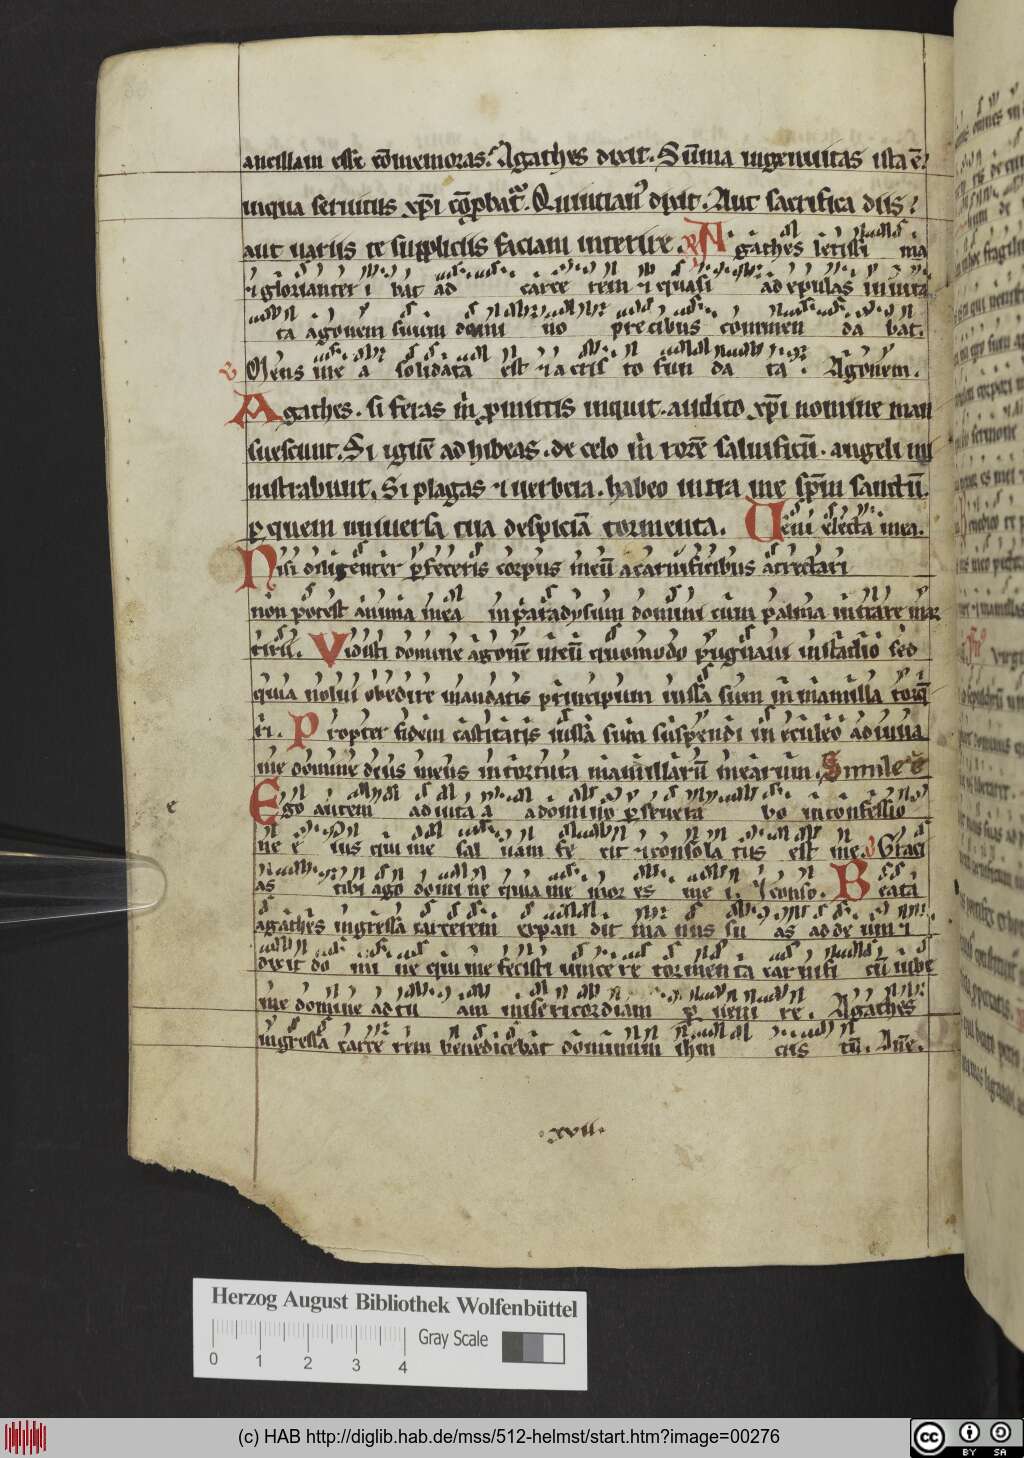 ancillam esse cōmemoras? Agathes dixit. Sūma ingenuitas ista ē.
inqua seruitus xp̄i cōprobat᷑. Quincian⁹ dixit. Aut sacrifica diis?
aut uariis te suppliciis faciam interire. ℟ Agathes letissi ma
⁊ glorianter i bat ad carce rem ⁊ quasi ad epulas inuita
ta agonem suum domi no precibus commen da bat.
v Mens me a solidata est ⁊ a cris to fun da ta. Agonem.
Agathes. si feras m̄ promittis inquit. audito xp̄i nomine man
suescunt. Si ignē adhibeas. de celo m̄ rorē saluificū. angeli mi
nistrabunt. Si plagas ⁊ uerbera. habeo intra me sp̄m sanctū.
ꝑ quem uniuersa tua despiciā tormenta. Ueni electa mea.
Nisi diligenter ꝑfeceris corpus meū a carnificibus atrectari
non potest anima mea in paradysum domini cum palma intrare mar
tirii. Vidisti domine agonē meū quomodo pugnaui in stadio sed
quia nolui obedire mandatis principum iussa sum in mamilla torq̄
ri. Propter fidem castitatis iussa sum suspendi in eculeo adiuua
me domine deus meus in tortura mamillarū mearum. Simile ē
Ego autem ad iuta a a domino ꝑseuera bo in confessio
e
ne e ius qui me sal uam fe cit ⁊ consola tus est me. v Graci
as tibi ago domi ne quia me mor es me i. ⁊ conso. Beata
agathes ingressa carcerem expan dit ma nus su as ad de um ⁊
dixit do mi ne qui me fecisti uince re tormen ta car nifi cū iube
me domine ad tu am misericordiam ꝑ ueni re. Agathes
ingressa carce rem benedicebat dominum ihm cris tū. Ane.
.xvii.
Herzog August Bibliothek Wolfenbüttel
Gray Scale
0 1 2 3 4
(c) HAB http://diglib.hab.de/mss/512-helmst/start.htm?image=00276
cc BY SA